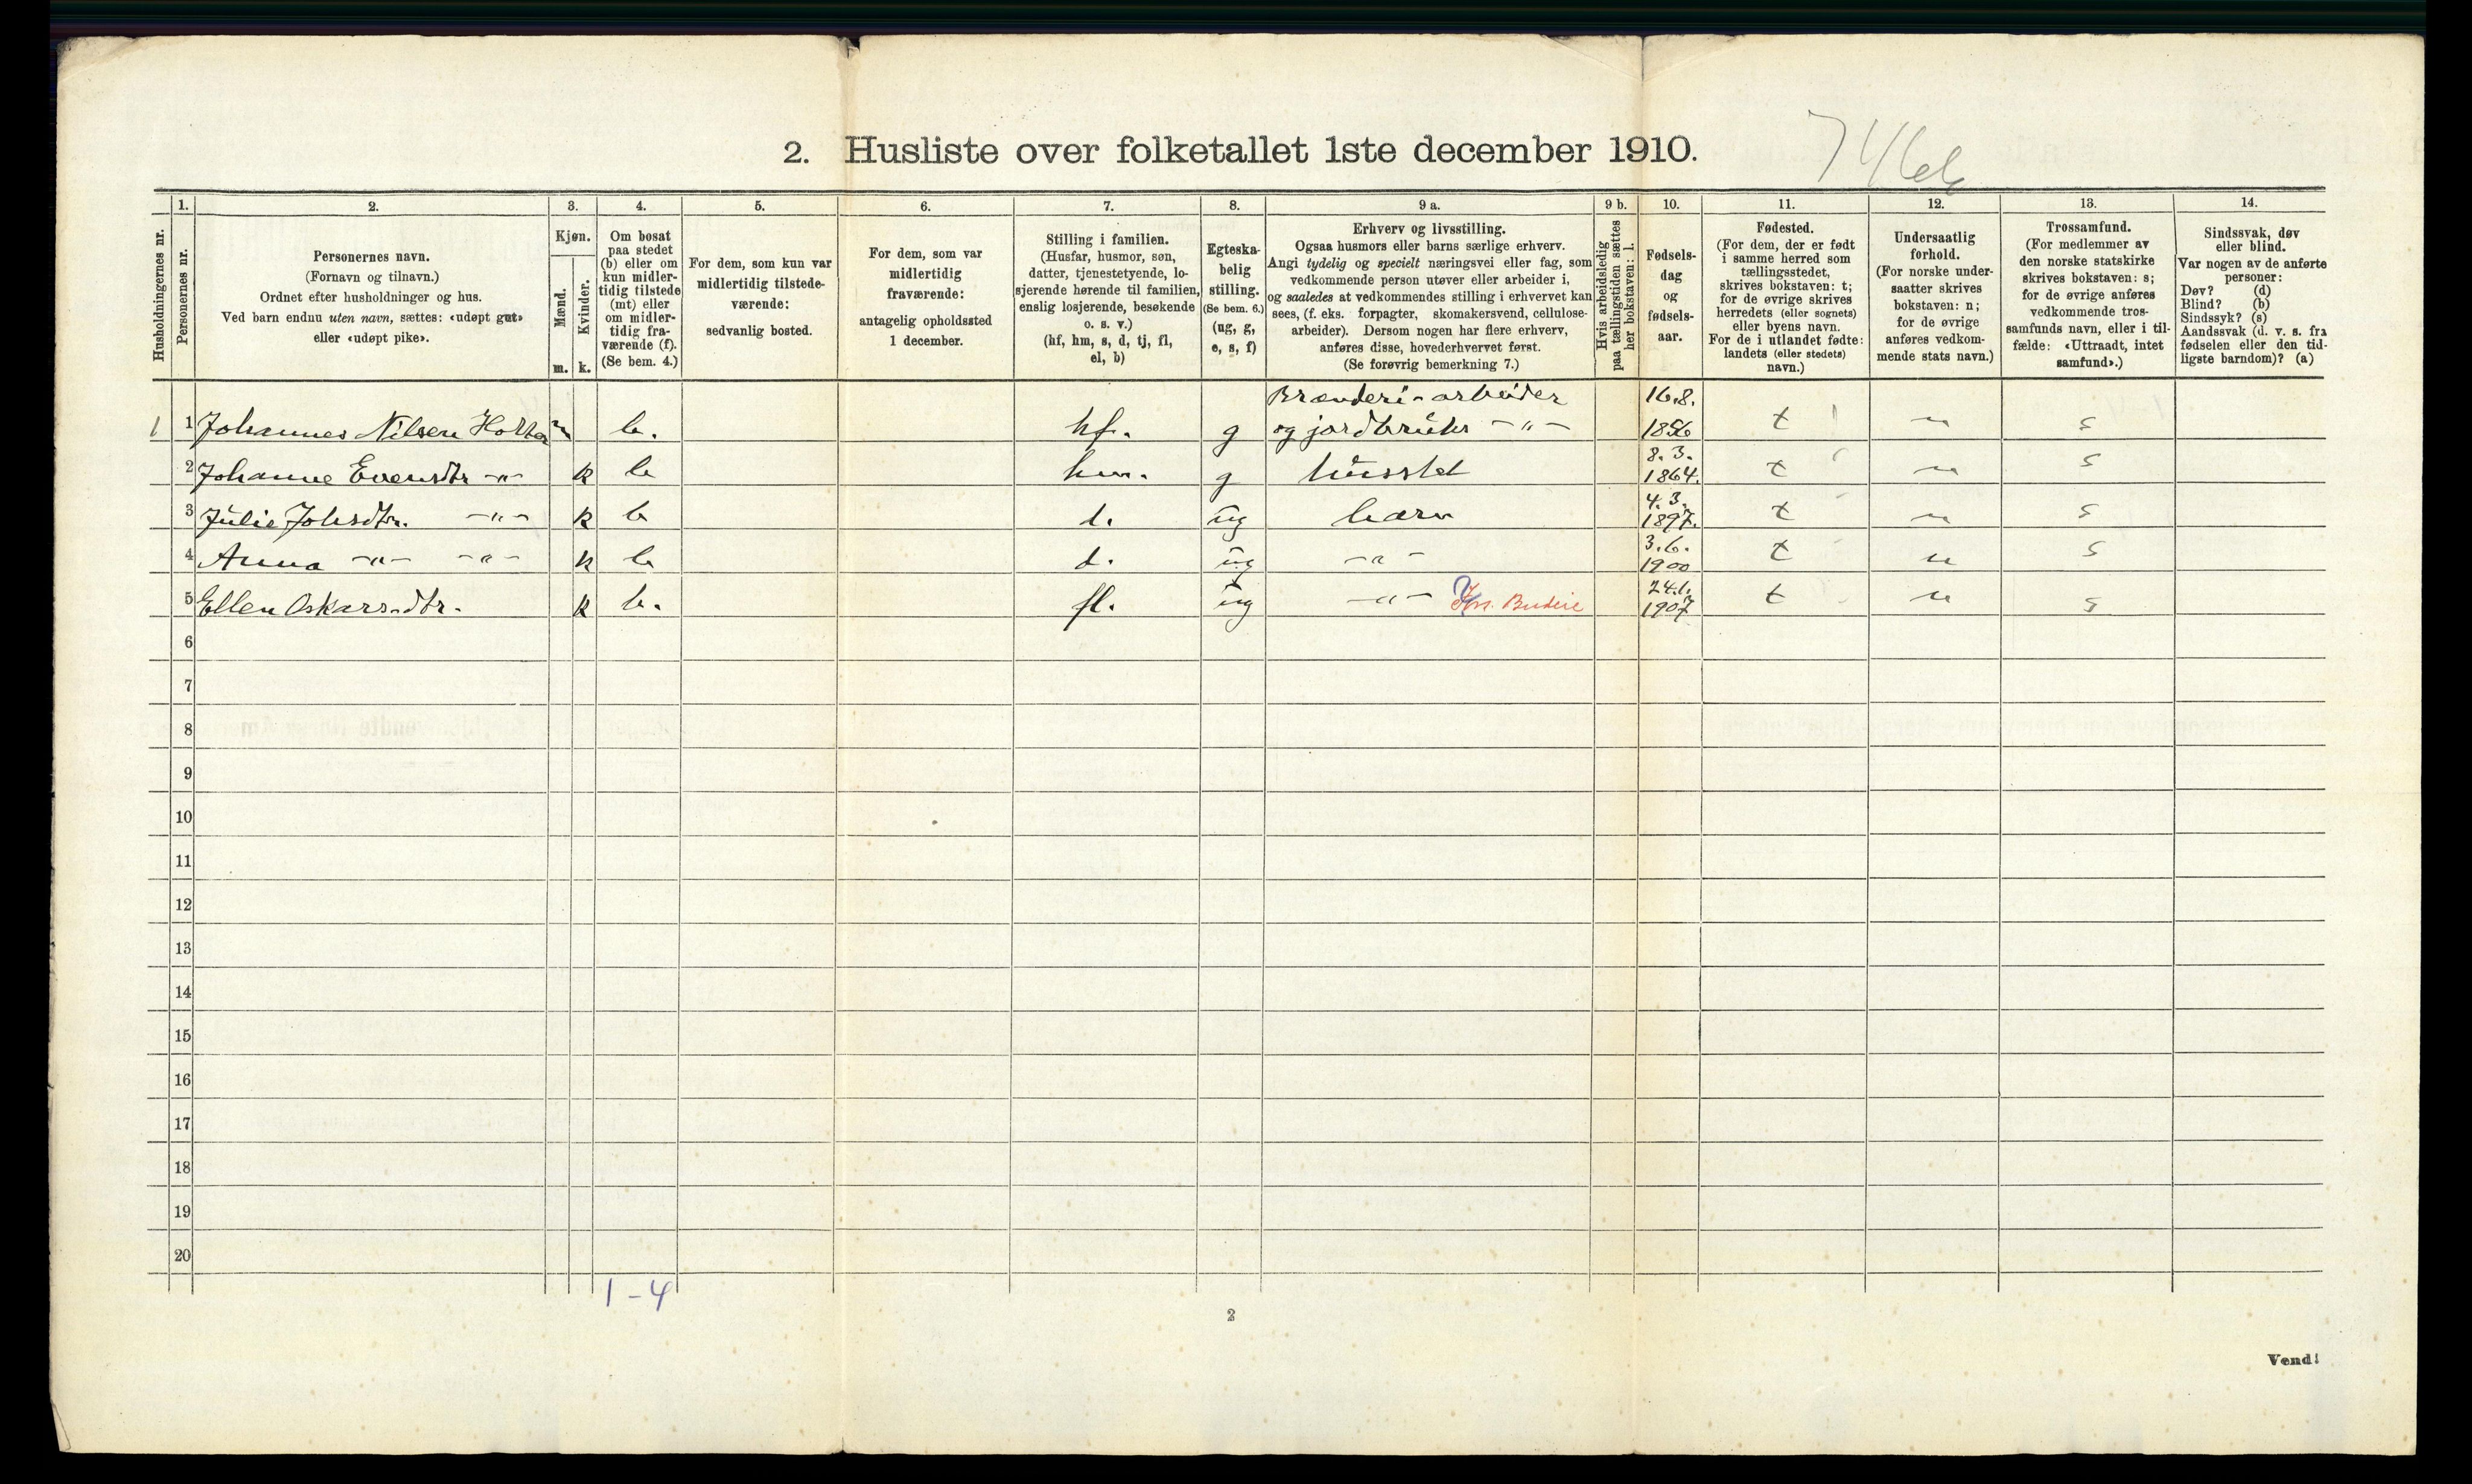 2. Husliste over folketallet 1ste december 1910.
Husholdningernes nr.
1.
Personernes nr.
2.
Personernes navn.
(Fornavn og tilnavn.)
Ordnet efter husholdninger og hus.
Ved barn endnu uten navn, sættes: «udøpt gut»
eller «udøpt pike».
3.
Kjøn.
Mænd.
Kvinder.
m. k.
4.
Om bosat
paa stedet
(b) eller om
kun midler-
tidig tilstede
(mt) eller
om midler-
tidig fra-
værende (f).
(Se bem. 4.)
5.
For dem, som kun var
midlertidig tilstede-
værende:
sedvanlig bosted.
6.
For dem, som var
midlertidig
fraværende:
antagelig opholdssted
1 december.
7.
Stilling i familien.
(Husfar, husmor, søn,
datter, tjenestetyende, lo-
sjerende hørende til familien,
enslig losjerende, besøkende
o. s. v.)
(hf, hm, s, d, tj, fl,
el, b)
8.
Egteska-
belig
stilling.
(Se bem. 6.)
(ug, g,
e, s, f)
9 a.
Erhverv og livsstilling.
Ogsaa husmors eller barns særlige erhverv.
Angi tydelig og specielt næringsvei eller fag, som
vedkommende person utøver eller arbeider i,
og saaledes at vedkommendes stilling i erhvervet kan
sees, (f. eks. forpagter, skomakersvend, cellulose-
arbeider). Dersom nogen har flere erhverv,
anføres disse, hovederhvervet først.
(Se forøvrig bemerkning 7.)
9 b.
Hvis arbeidsledig
paa tællingstiden sættes
her bokstaven: l.
10.
Fødsels-
dag
og
fødsels-
aar.
11.
Fødested.
(For dem, der er født
i samme herred som
tællingsstedet,
skrives bokstaven: t;
for de øvrige skrives
herredets (eller sognets)
eller byens navn.
For de i utlandet fødte:
landets (eller stedets)
navn.)
12.
Undersaatlig
forhold.
(For norske under-
saatter skrives
bokstaven: n;
for de øvrige
anføres vedkom-
mende stats navn.)
13.
Trossamfund.
(For medlemmer av
den norske statskirke
skrives bokstaven: s;
for de øvrige anføres
vedkommende tros-
samfunds navn, eller i til-
fælde: «Uttraadt, intet
samfund».)
14.
Sindssvak, døv
eller blind.
Var nogen av de anførte
personer:
Døv? (d)
Blind? (b)
Sindssyk? (s)
Aandssvak (d. v. s. fra
fødselen eller den tid-
ligste barndom)? (a)
1 1 Johannes Nilsen m b. hf. g Brænderi-arbeider og jordbruks -"- 16.8. 1856 t n s
2 Johanne Evensdtr -"- k b hm. g husstel 8.3. 1864. t n s
3 Julie Johsdtr. -"- k b d. ug barn 4.3. 1897. t n s
4 Anna -"- -"- k b d. ug -"- 3.6. 1900 t n s
5 Ellen Oskarsdtr. k b. fl. ug -"- 24.1. 1907 t n s
6
7
8
9
10
11
12
13
14
15
16
17
18
19
20
1-4
2
Vend!